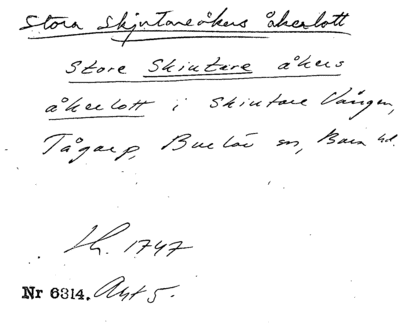 Stora Skjutareåkers åkerlott
Store Skiutare åkers
åkerlott i Skiutare Vången,
Tågarp, Burlöv sn, Bara hd.
Lh. 1747
Nr 6314. Akt 5.